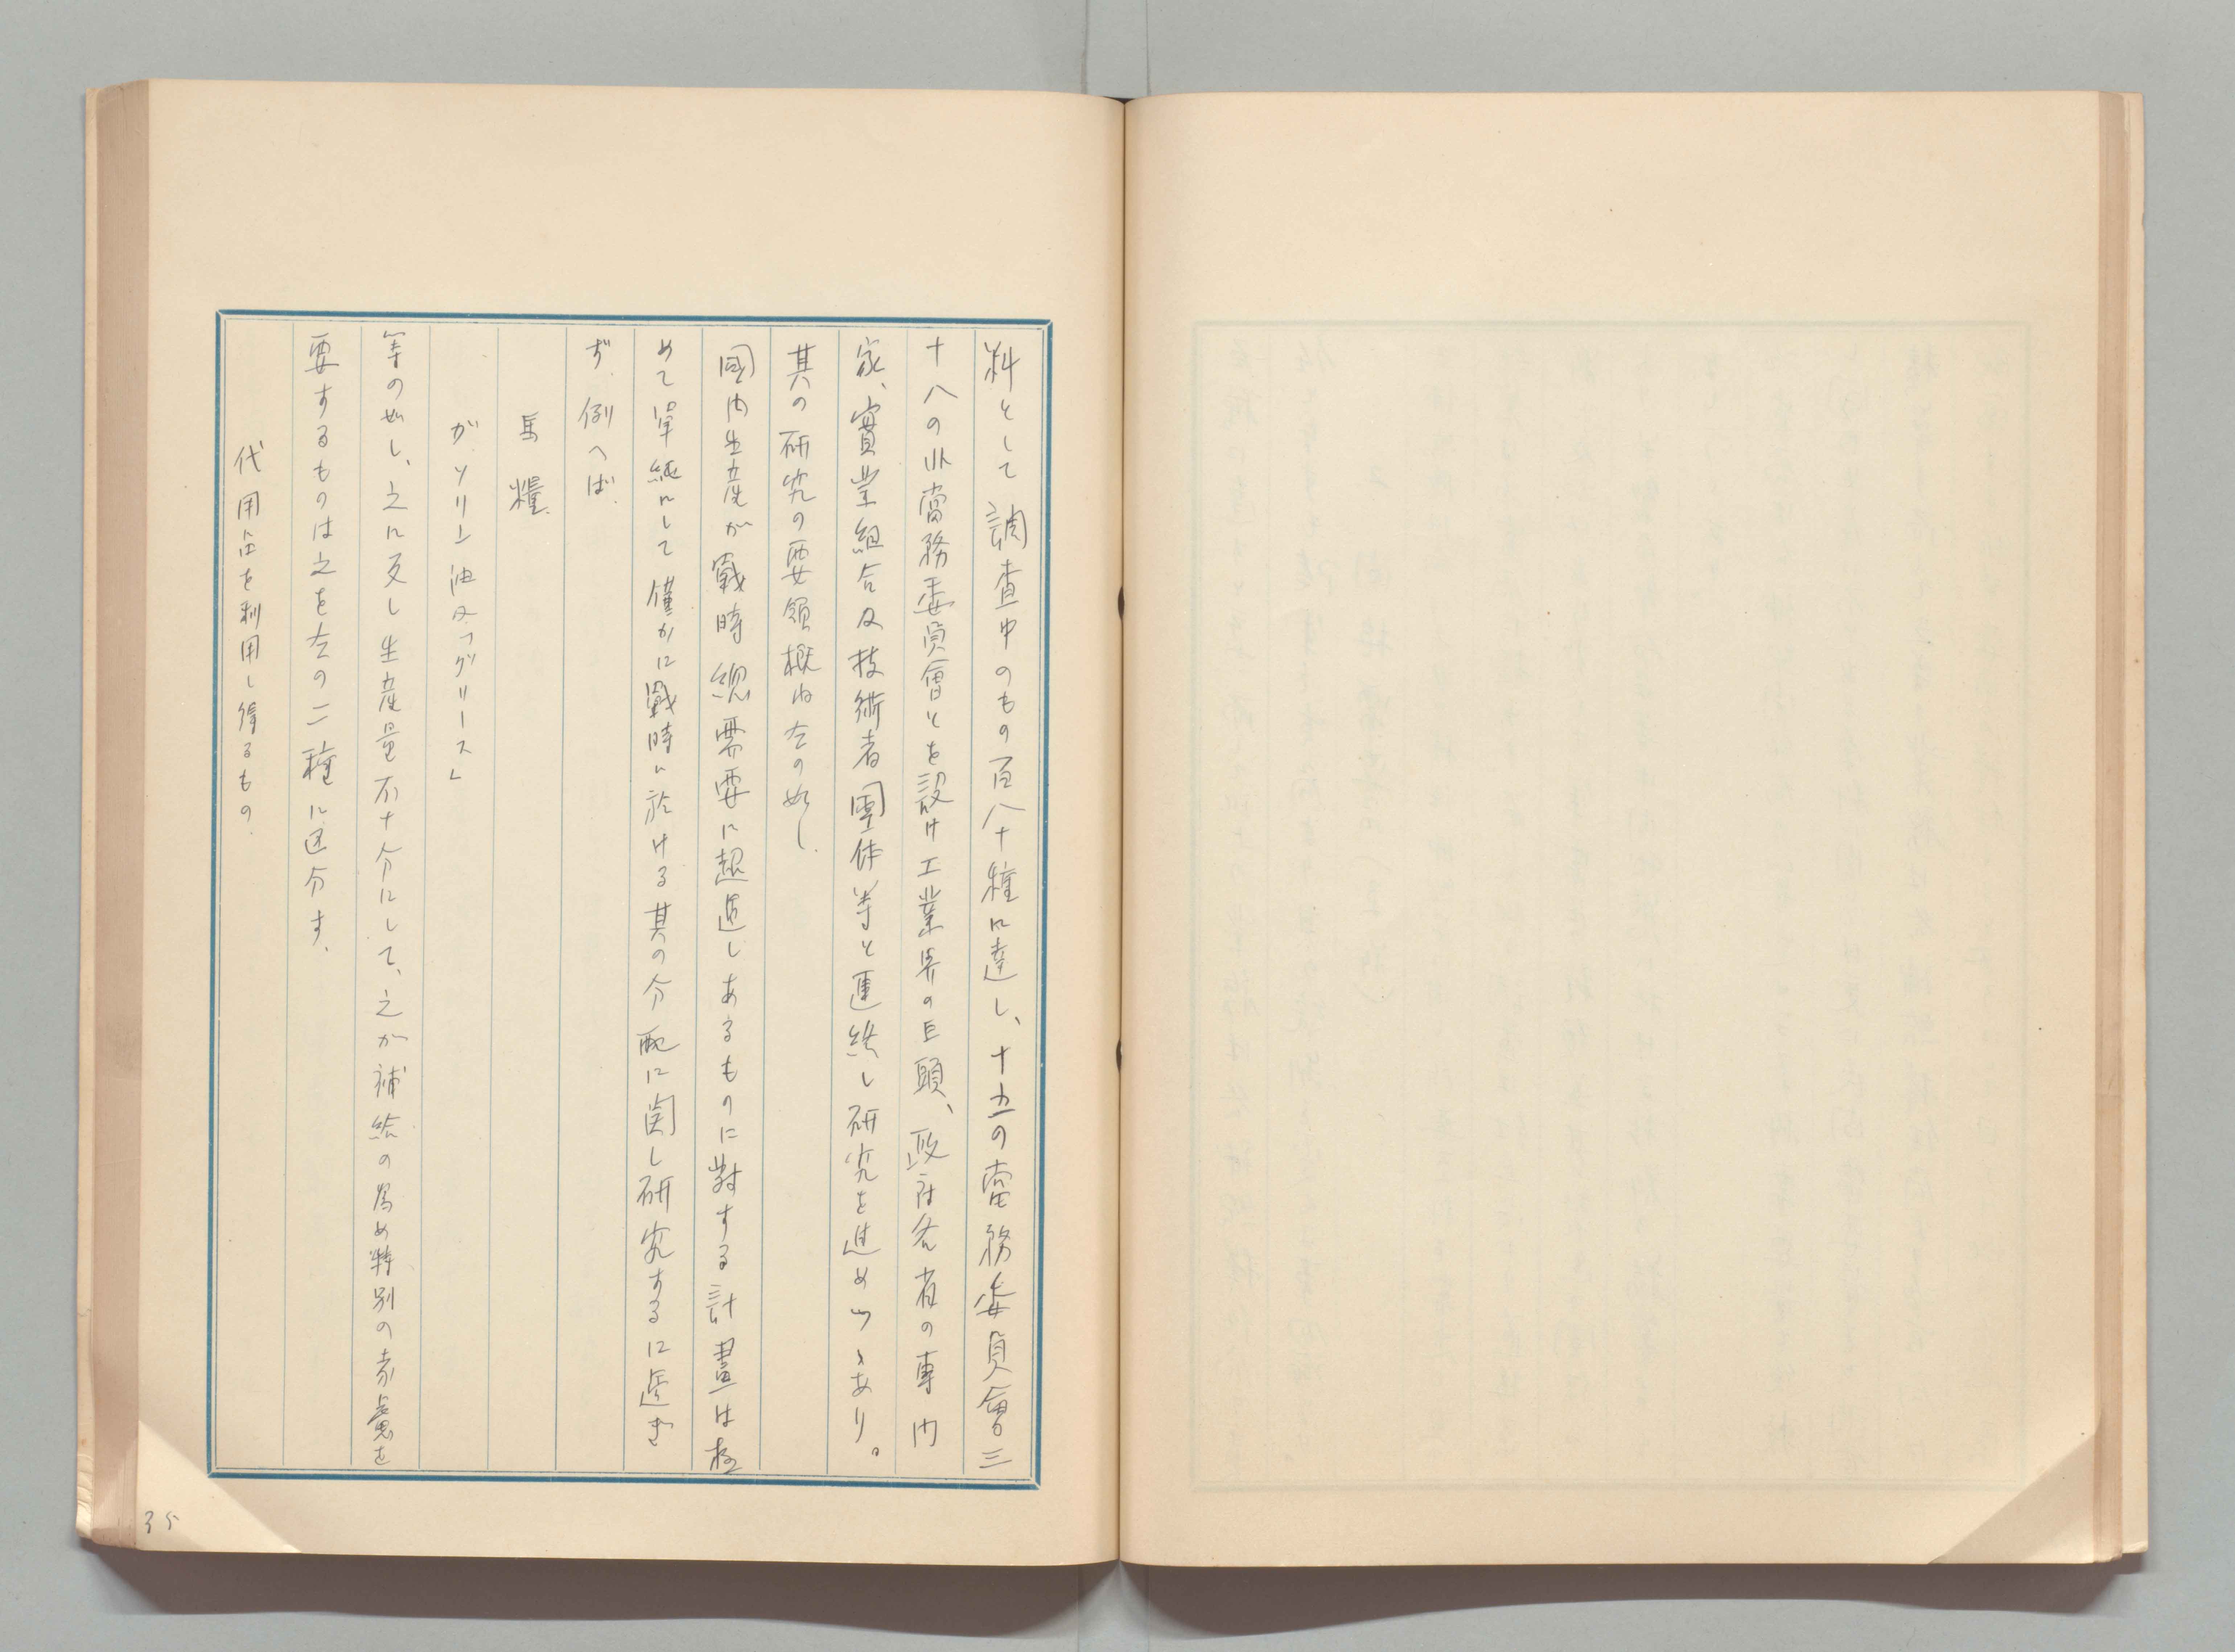 料として調査中のもの百八十種に達し、十五の常務委員會三
十八の非常務委員會とを設け工業界の巨頭、政府各省の専門
家、實業組合及技術者團体等と連絡し研究を進めつゝあり。
其の研究の要領概ね左の如し
國内生産が戰時總需要に超過しあるものに對する計畫は極
めて單純にして僅かに戰時に於ける其の分配に関し研究するに過ぎ
ず、例へば
馬糧
ガソリン油及「グリース」
等の如し、之に反し生産量不十分にして、之が補給の為め特別の考慮を
要するものは之を左の二種に区分す、
代用品を利用し得るもの
35